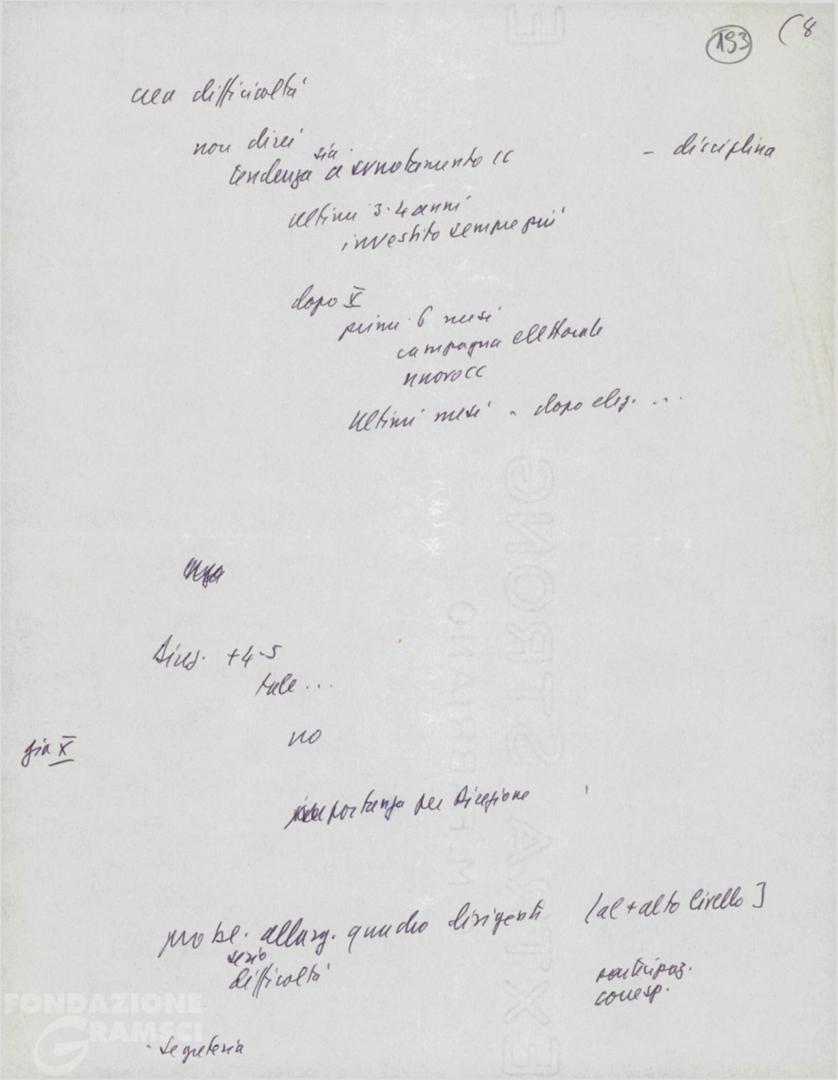 193 (8
crea difficoltà
non direi
sia
tendenza a svuotamento CC - disciplina
ultimi 3-4 anni
investito sempre più
dopo X
primi 6 mesi
campagna elettorale
nuovo CC
Ultimi mesi - dopo elez. ...
Direz. +4-5
tale ...
già X
no
importanza per Direzione
probl. allarg. quadro dirigenti (al + alto livello]
serio
difficoltà
partecipaz.
corresp.
- segreteria
FONDAZIONE
GRAMSCI
EXTRA STRONG
M. FABRIANO